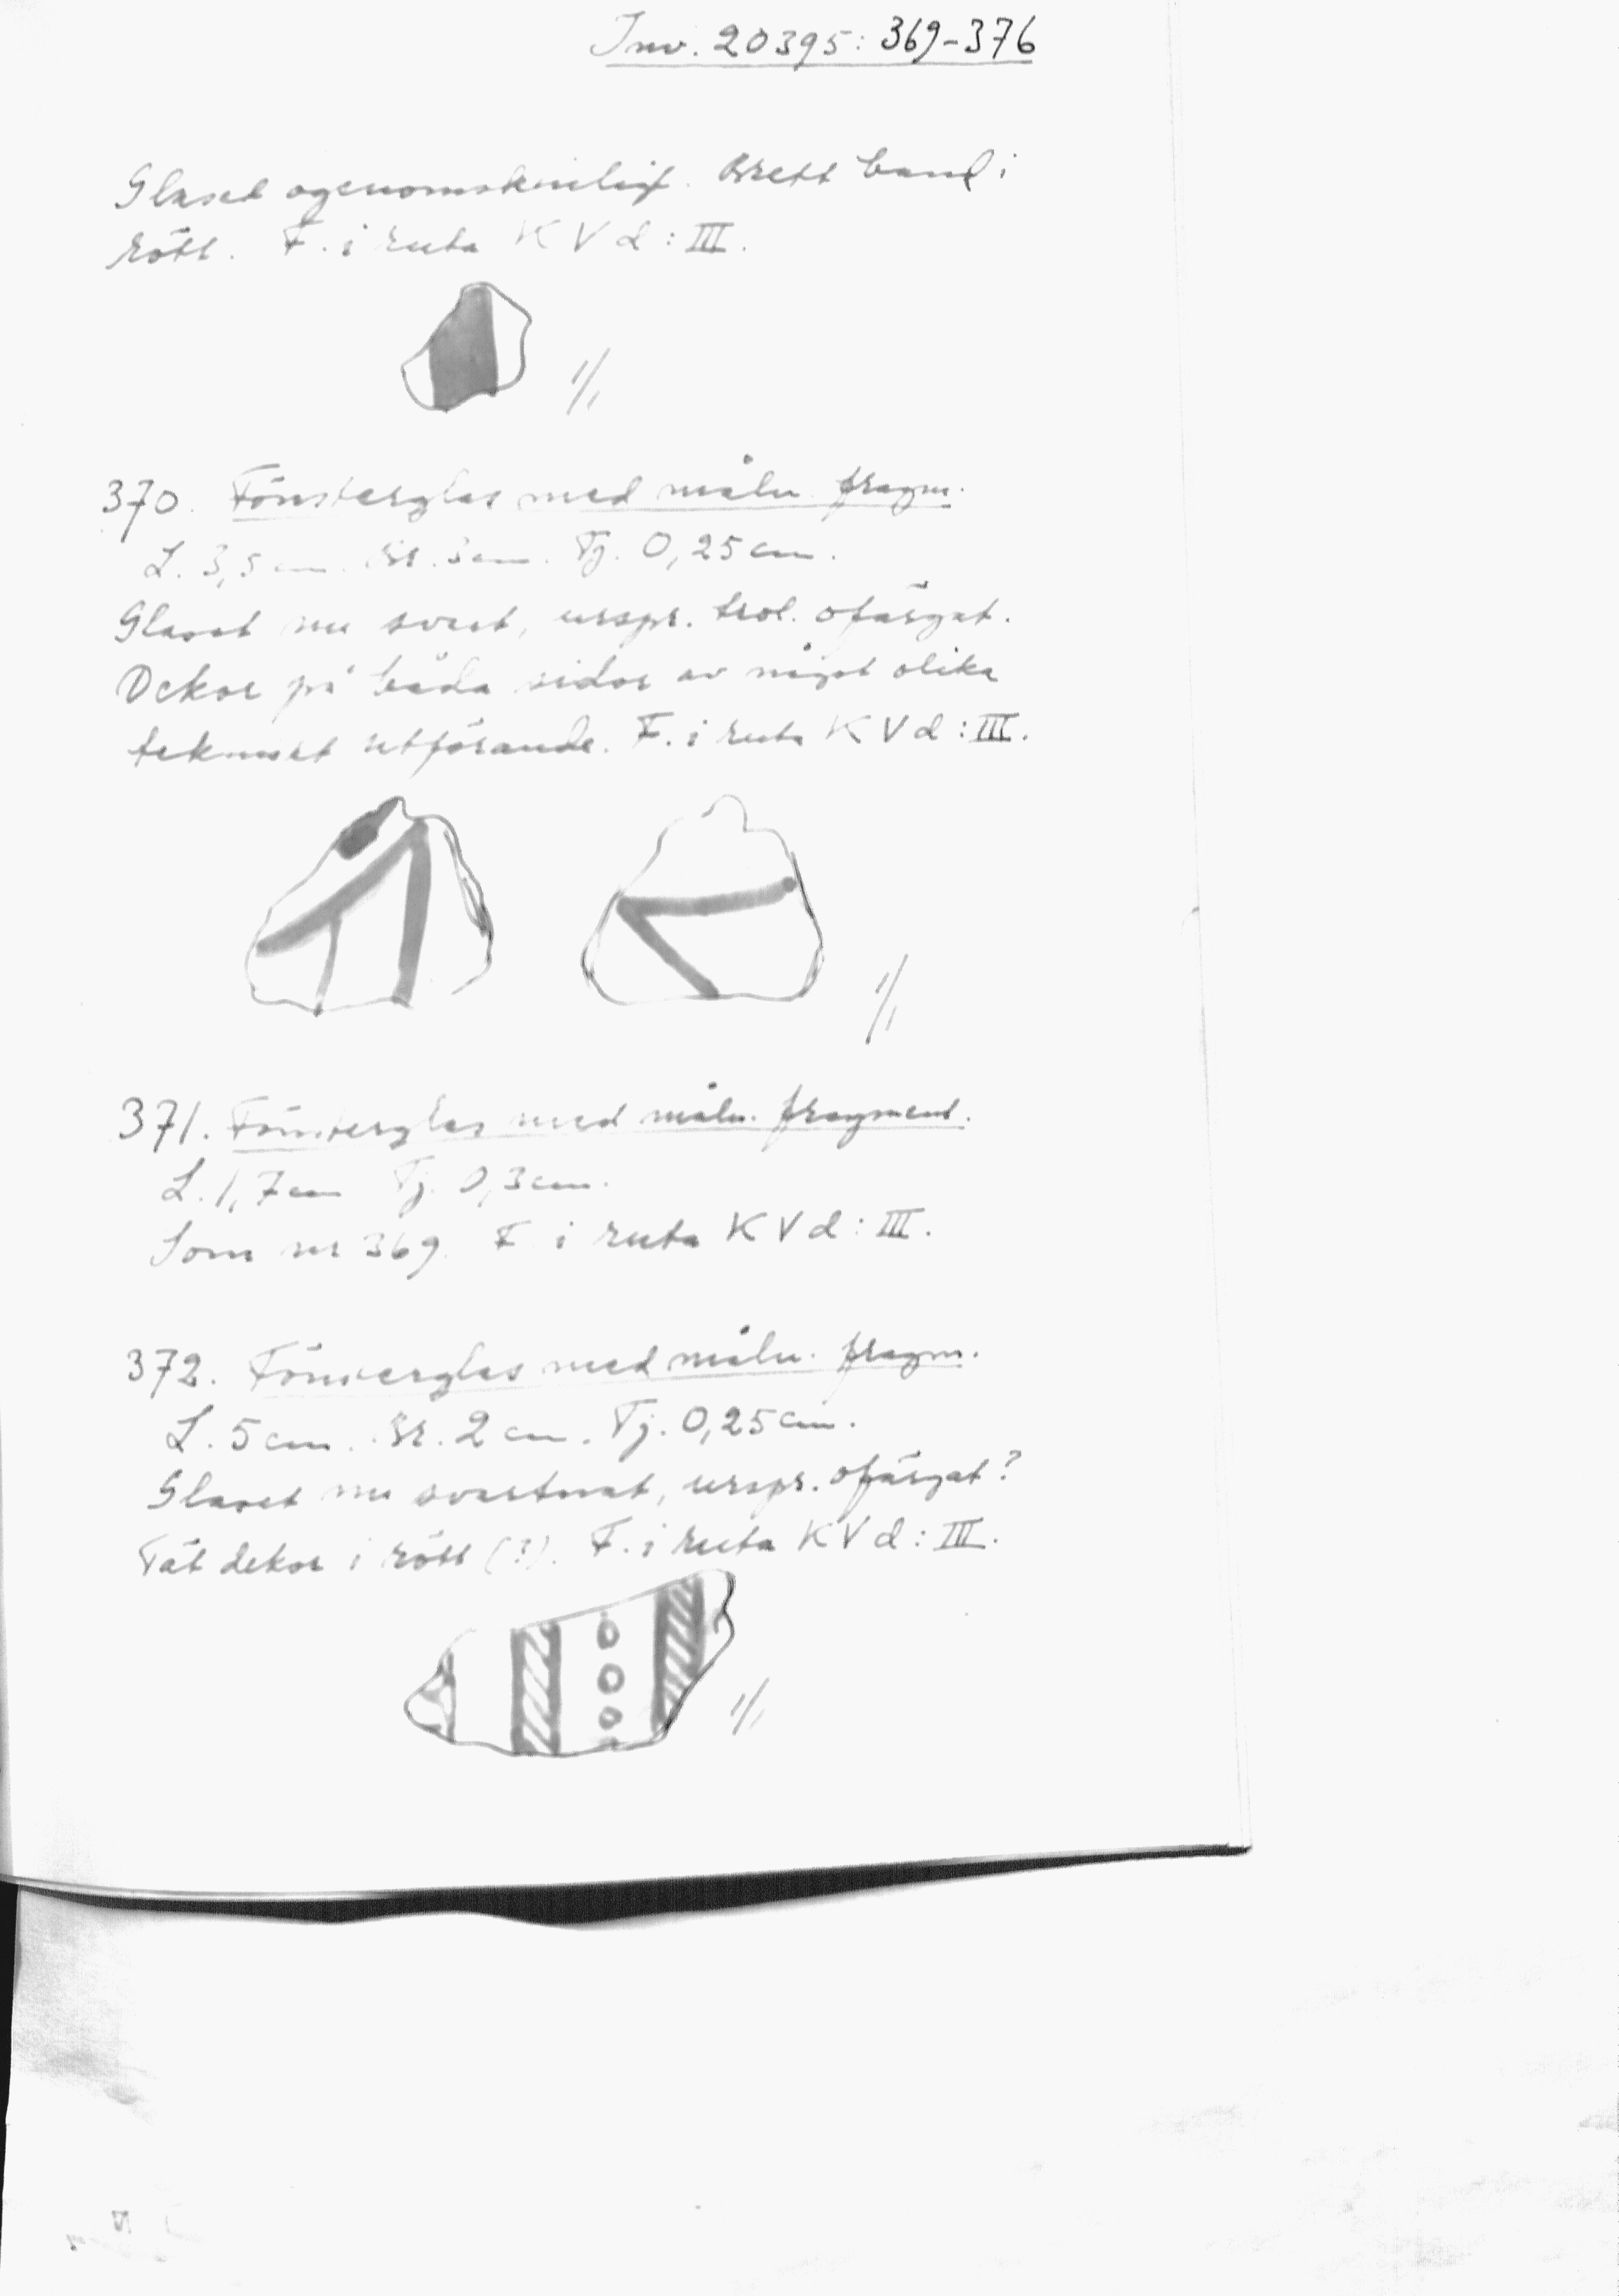 Inv. 20395: 369-376
Glaset ogenomskinligt. Brett band i
rött. F. i ruta K V d : III.
1/1
370. Fönsterglas med måln. fragm.
L. 3,5 cm. Br. 3 cm. Tj. 0,25 cm.
Glaset nu svart, urspr. trol. ofärgat.
Dekor på båda sidor av något olika
tekniskt utförande. F. i ruta K V d : III.
1/1
371. Fönsterglas med måln. fragment.
L. 1,7 cm Tj. 0,3 cm.
Som nr 369. F. i ruta K V d : III.
372. Fönsterglas med måln. fragm.
L. 5 cm. Br. 2 cm. Tj. 0,25 cm.
Glaset nu svartnat, urspr. ofärgat?
Tät dekor i rött (?). F. i ruta K V d : III.
1/1